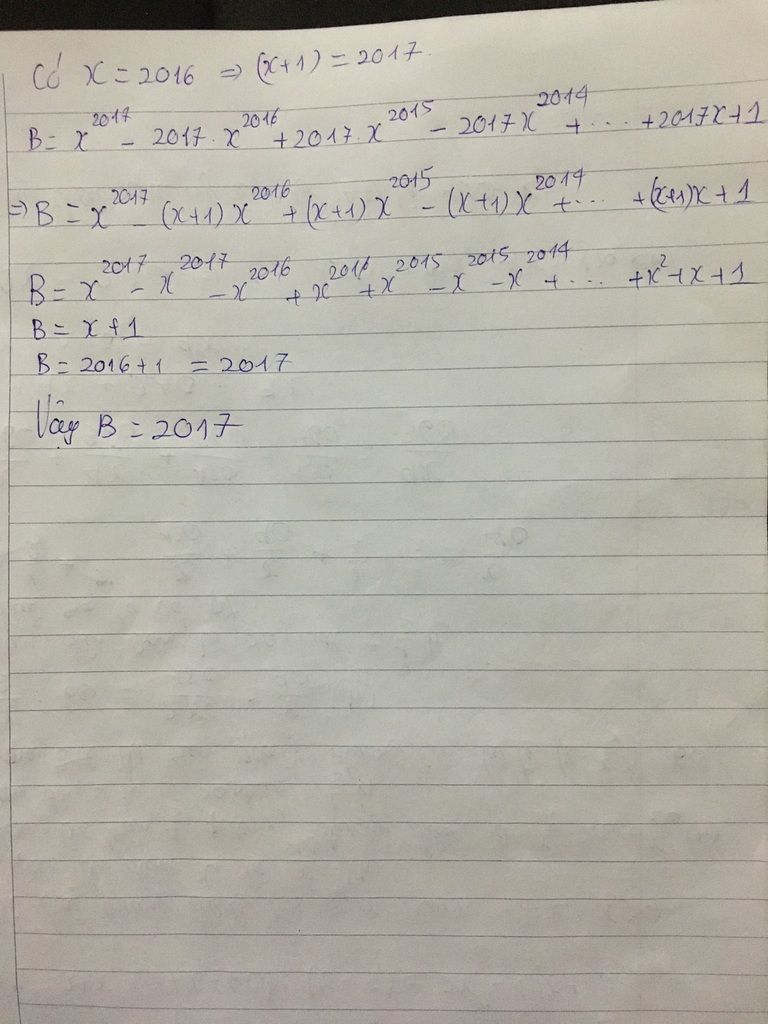 Có x = 2016 ⇒ (x+1) = 2017.
B = x^2017 - 2017.x^2016 + 2017.x^2015 - 2017x^2014 + ... + 2017x + 1
⇒ B = x^2017 - (x+1)x^2016 + (x+1)x^2015 - (x+1)x^2014 + ... + (x+1)x + 1
B = x^2017 - x^2017 - x^2016 + x^2016 + x^2015 - x^2015 - x^2014 + ... + x^2 + x + 1
B = x + 1
B = 2016 + 1 = 2017
Vậy B = 2017